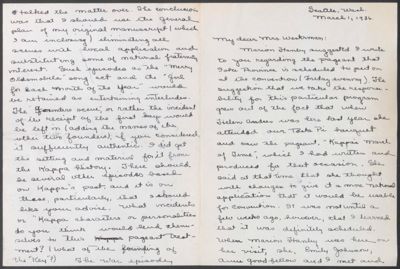 Seattle, Wash.
March 1, 1936
My dear Mrs Westermann:
Marion Handy suggested I write
to you regarding the pageant that
Iota Province is scheduled to put on
at the convention (Friday evening). The
suggestion that we take the responsi-
bility for this particular program
grew out of the fact that when
Helen Andres was here last year, she
attended our Tacoma banquet
and saw the pageant, "Kappa's March
of Time", which I had written and
produced for that occasion. She
said at that time that she thought
with changes to give it a more national
application that it would be usable
for convention. It was not until a
few weeks ago, however, that I learned
that it was definitely scheduled.
When Marion Handy was here, on
her visit, she, Emily Johnson,
Anne Goodfellow and I met and
talked the matter over. The conclusion
was that I should use the general
plan of my original manuscript (which
I am inclosing) eliminating all
scenes with local application and
substituting some of national fraternity
interest. Such episodes as the "Merry
Oldsmobile" song act and the "Girl
for Each Month of the Year" would
be retained as entertaining interludes.
The Founders scene, or rather the incident
of the receipt of the first keys would
be left in (adding the names of the
other two founders) if you considered
it sufficiently authentic. I did get
the setting and material for it from
the Kappa history. There should
be several other episodes based
on Kappa's past, and it is on
these, particularly, that I should
like your advice. What incidents
or Kappa characters or personalities
do you think would lend them-
selves to this pageant treat-
ment? (What of the founding of
the "Key"?) The war episode,